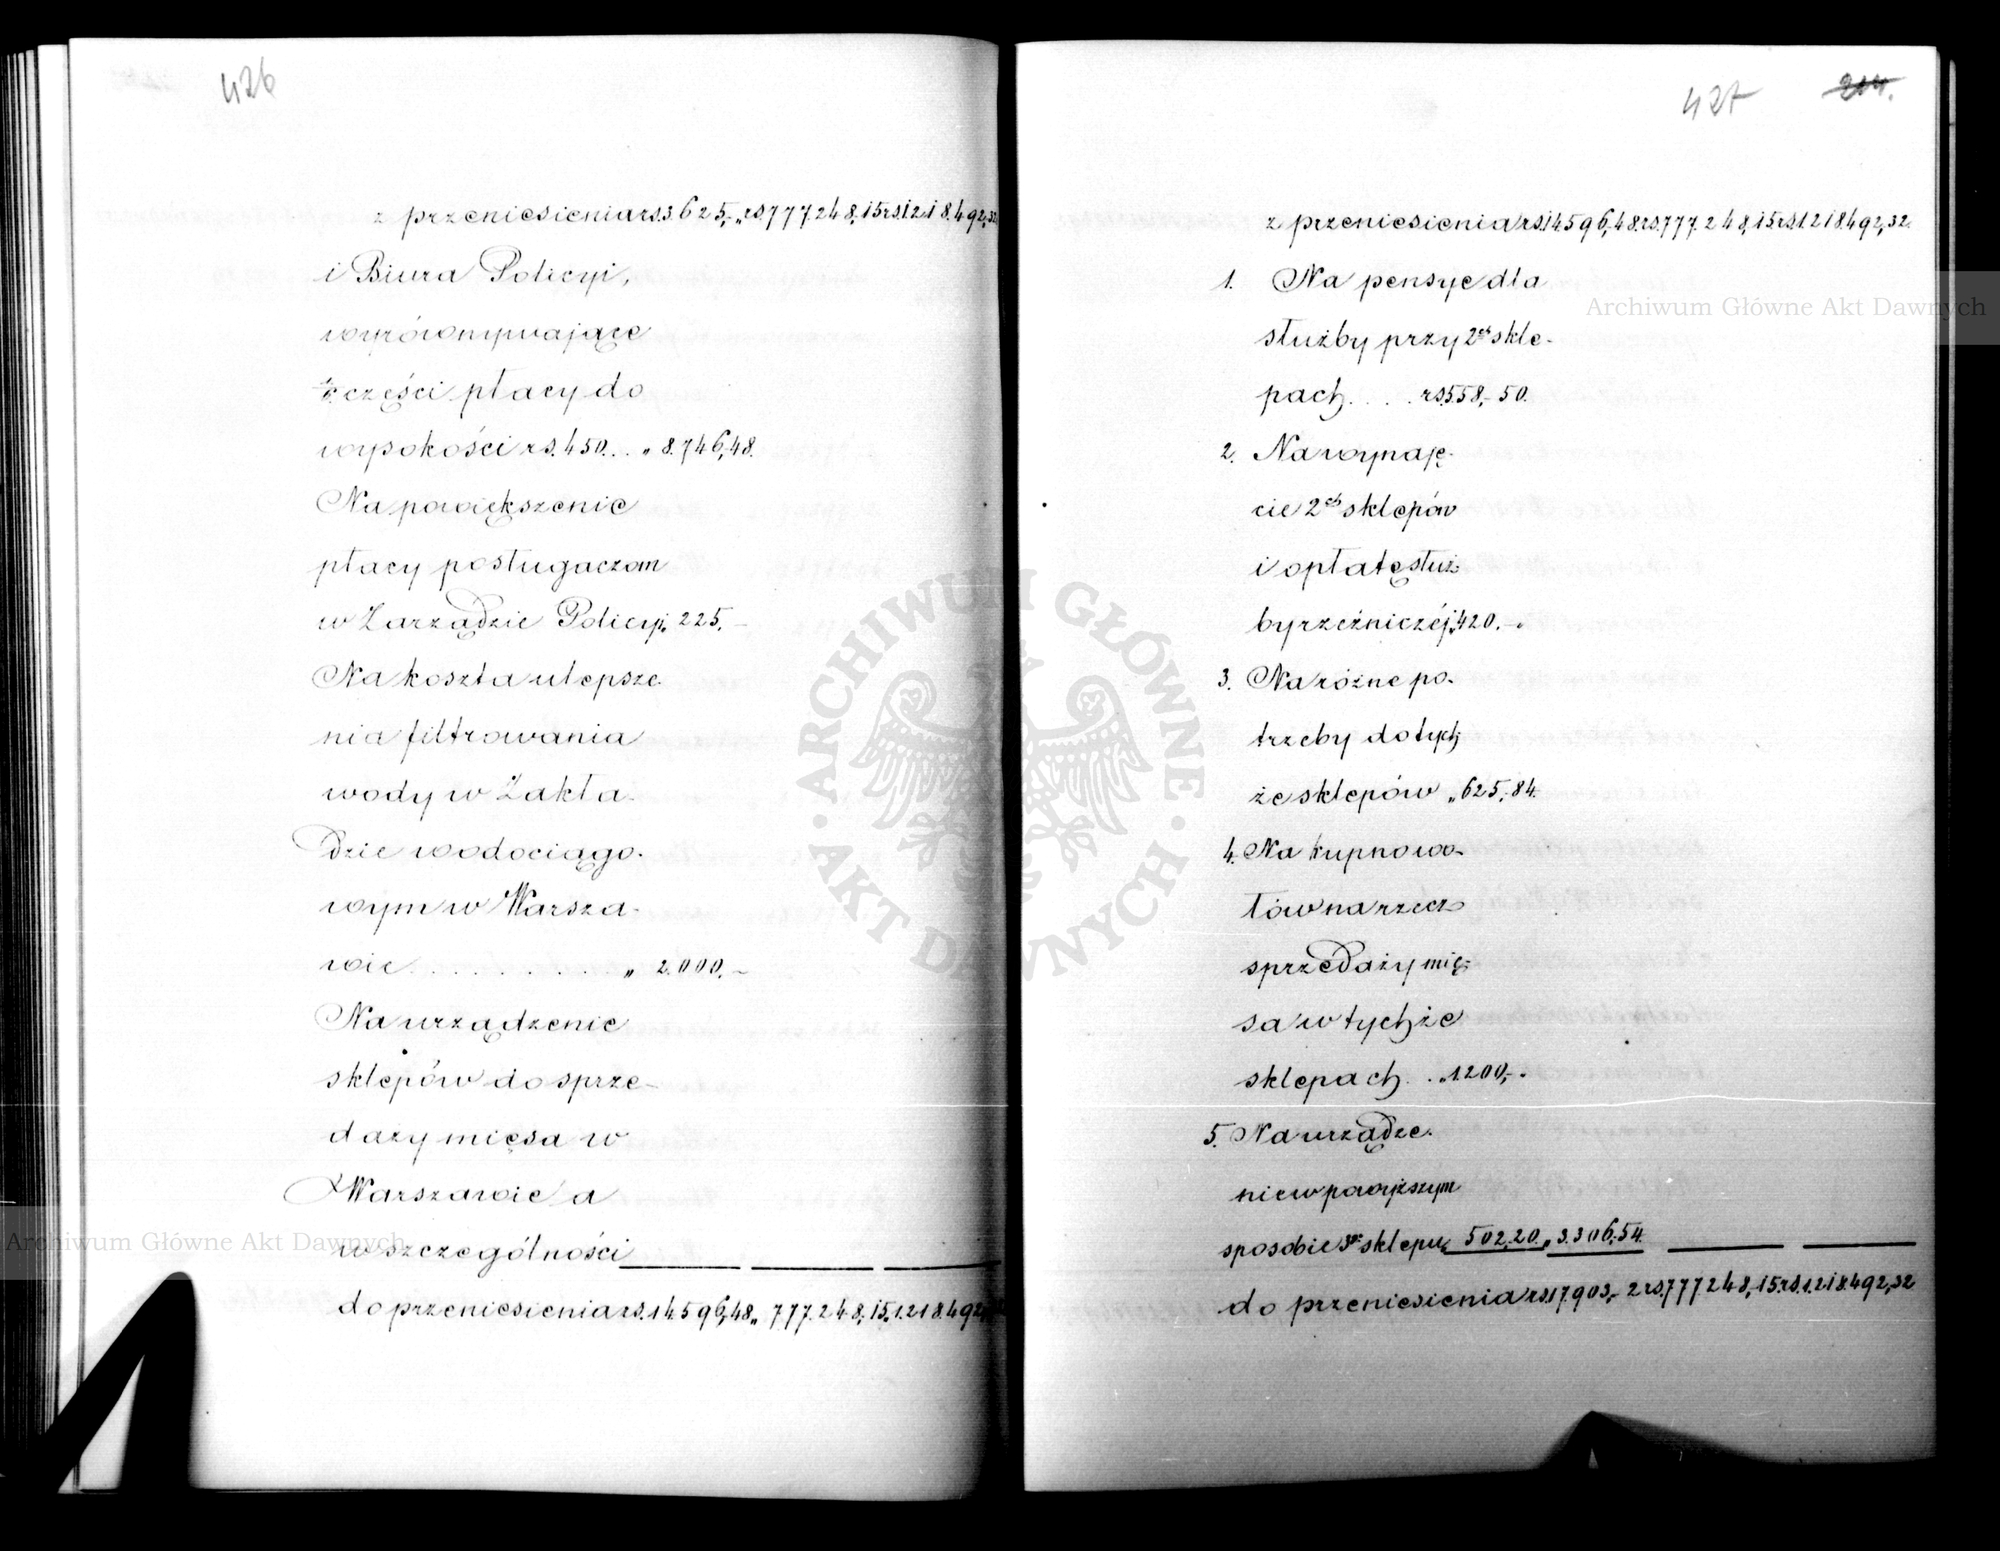 426
z przeniesienia rs. 3.625,- „ rs. 777.248,15 rs. 1.218.492,32
i Biura Policyi,
wyrównywające
części płacy do
wysokości rs. 450... „ 8.746,48.
Na powiększenie
płacy posługaczom
w Zarządzie Policyi „ 225.–
Na koszta ulepsze-
nia filtrowania
wody w Zakła-
dzie wodociągo-
wym w Warsza-
wie . . . . . . . . . . „ 2.000.–
Na urządzenie
sklepów do sprze-
daży mięsa w
Warszawie a
w szczególności
do przeniesienia rs. 14.596,48 „ 777.248,15 „ 1.218.492,
427 214.
z przeniesienia rs. 14596,48 rs. 777.248,15 rs. 1.218.492,32.
1. Na pensye dla
służby przy 2ch skle-
pach . . . . rs. 558,-50.
2. Na wynaję-
cie 2ch sklepów
i opłatę służ-
by rzeźniczéj „ 420.–
3. Na różne po-
trzeby do tych-
że sklepów „ 625,-84.
4. Na kupno wo-
łów na rzecz
sprzedaży mię-
sa w tychże
sklepach . . „ 1.200,-.
5. Na urządze-
nie w powyższym
sposobie 3go sklepu „ 502.20. „ 3.306,54.
do przeniesienia rs. 17.903,-2 rs. 777.248,-15 rs. 1.218.492,32
Archiwum Główne Akt Dawnych
Archiwum Główne Akt Dawnych
ARCHIWUM GŁÓWNE AKT DAWNYCH